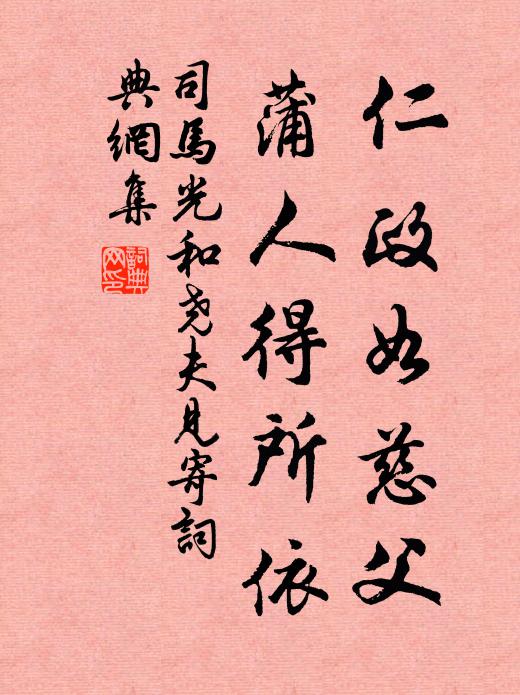 仁政如慈父
蒲人得所依
司馬光和尧夫見寄詞
典網集
詞典
网印